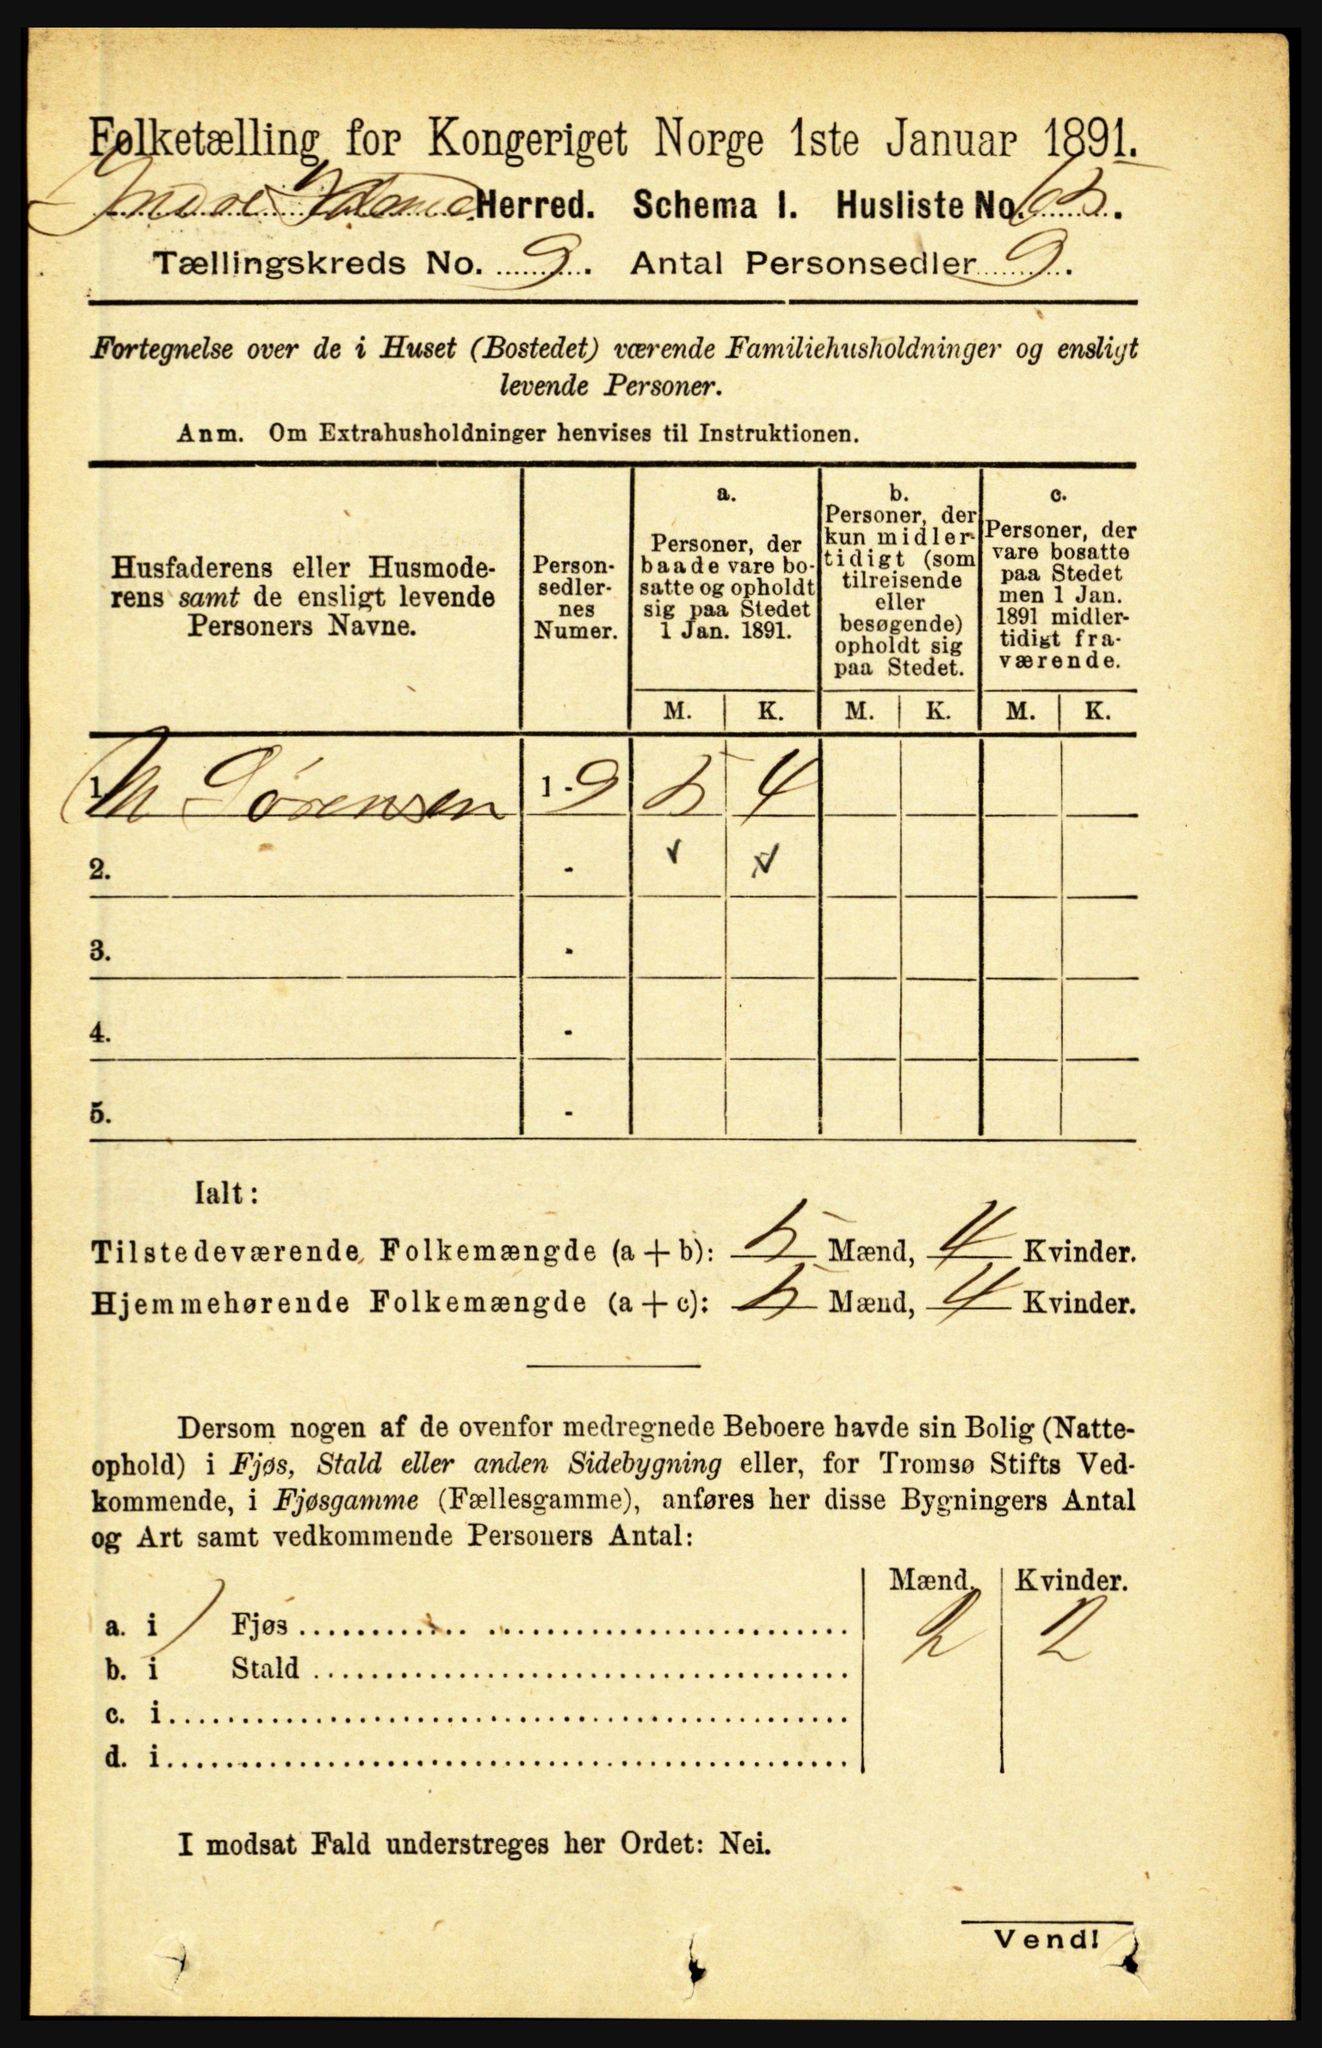 Folketælling for Kongeriget Norge 1ste Januar 1891.
Indre Herred. Schema I. Husliste No.
Tællingskreds No. 9. Antal Personsedler 9.
Fortegnelse over de i Huset (Bostedet) værende Familiehusholdninger og ensligt
levende Personer.
Anm. Om Extrahusholdninger henvises til Instruktionen.
Husfaderens eller Husmode-
rens samt de ensligt levende
Personers Navne.
Person-
sedler-
nes
Numer.
a.
Personer, der
baade vare bo-
satte og opholdt
sig paa Stedet
1 Jan. 1891.
b.
Personer, der
kun midler-
tidigt (som
tilreisende
eller
besøgende)
opholdt sig
paa Stedet.
c.
Personer, der
vare bosatte
paa Stedet
men 1 Jan.
1891 midler-
tidigt fra-
værende.
M. K. M. K. M. K.
1. M Sørensen 1 - 9 5 4
2. - ✓ ✓
3. -
4. -
5. -
Ialt:
Tilstedeværende Folkemængde (a + b): 5 Mænd, 4 Kvinder.
Hjemmehørende Folkemængde (a + c): 5 Mænd, 4 Kvinder.
Dersom nogen af de ovenfor medregnede Beboere havde sin Bolig (Natte-
ophold) i Fjøs, Stald eller anden Sidebygning eller, for Tromsø Stifts Ved-
kommende, i Fjøsgamme (Fællesgamme), anføres her disse Bygningers Antal
og Art samt vedkommende Personers Antal:
Mænd. Kvinder.
a. i 1 Fjøs 2 2
b. i Stald
c. i
d. i
I modsat Fald understreges her Ordet: Nei.
Vend!